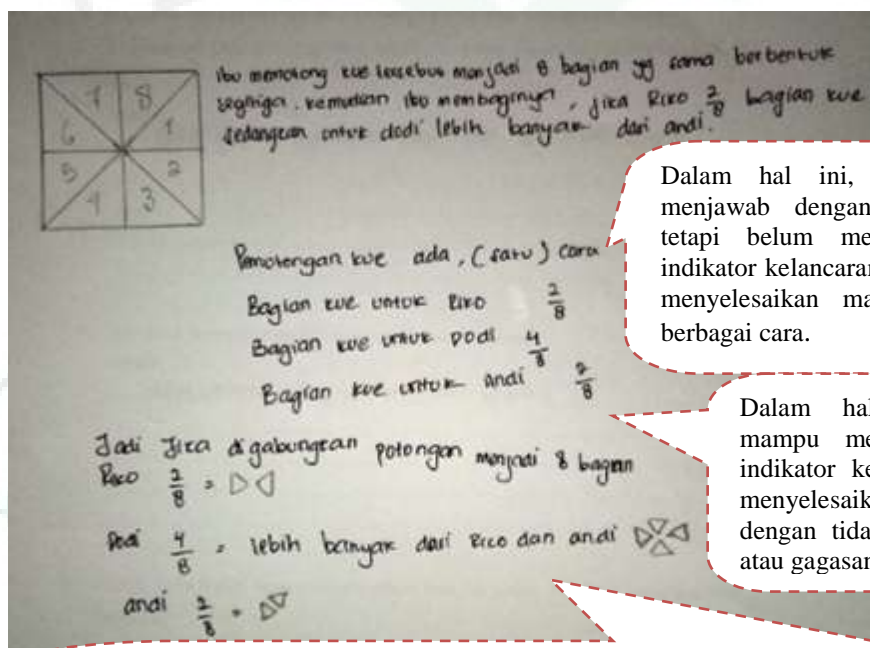 7 8
6 1
5 2
4 3
ibu memotong kue tersebut menjadi 8 bagian yg sama berbentuk
segitiga. kemudian ibu membaginya, jika Riko 2/8 bagian kue
sedangkan untuk dodi lebih banyak dari andi.
Pemotongan kue ada, (satu) cara
Bagian kue untuk Riko 2/8
Bagian kue untuk Dodi 4/8
Bagian kue untuk andi 2/8
Jadi Jika digabungkan potongan menjadi 8 bagian
Rico 2/8 =
Dodi 4/8 = lebih banyak dari Rico dan andi
andi 2/8 =
Dalam hal ini,
menjawab dengan
tetapi belum me
indikator kelancaran
menyelesaikan ma
berbagai cara.
Dalam hal
mampu me
indikator ke
menyelesaik
dengan tida
atau gagasan